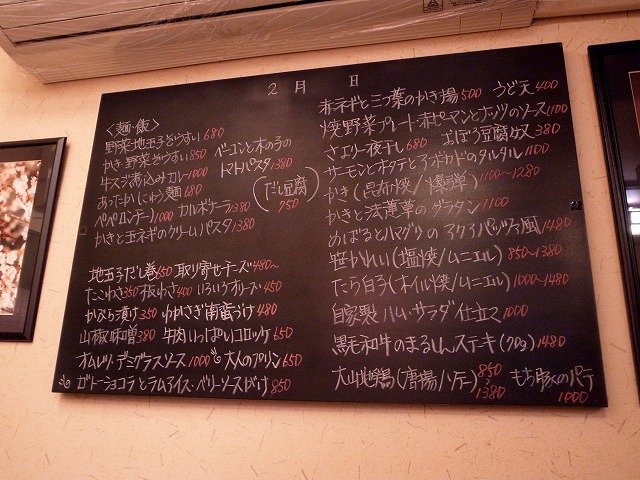 2月 日
〈麺・飯〉
野菜地玉子ぞうすい 680
かき・野菜ぞうすい 850
牛スジ煮込みカレー 1000
あったかにゅう麺 680
ペペロンチーノ 1000 カルボナーラ 1380
かきと玉ネギのクリームパスタ 1380
ベーコンと木の子の
トマトパスタ 1380
(だし豆腐)
750
地玉子だし巻 650 取り寄せチーズ 480~
たこわさ 350 板わさ 400 いろいろオリーブ 450
かぶら漬け 350 わかさぎ南蛮づけ 480
山椒味噌 380 牛肉いっぱいコロッケ 650
オムレツ・デミグラスソース 1000 大人のプリン 650
ガトーショコラとラムアイス・ベリーソースがけ 850
赤ネギと三つ葉のかき揚 500 うど天 400
焼野菜プレート・赤ピーマンとナッツのソース 1100
さより一夜干し 680 おぼろ豆腐 380
サーモンとホタテとアボカドのタルタル 1100
かき(昆布焼/爆弾) 1100~1280
かきと法蓮草のグラタン 1100
めばるとハマグリのアクアパッツァ風 1480
笹かれい(塩焼/ムニエル) 850~1380
たら白子(ホイル焼/ムニエル) 1000~1480
自家製ハム・サラダ仕立て 1000
黒毛和牛のまるしんステーキ(70g) 1480
大山地鶏(唐揚/ソテー) 850~1380 もち豚のパテ
1000